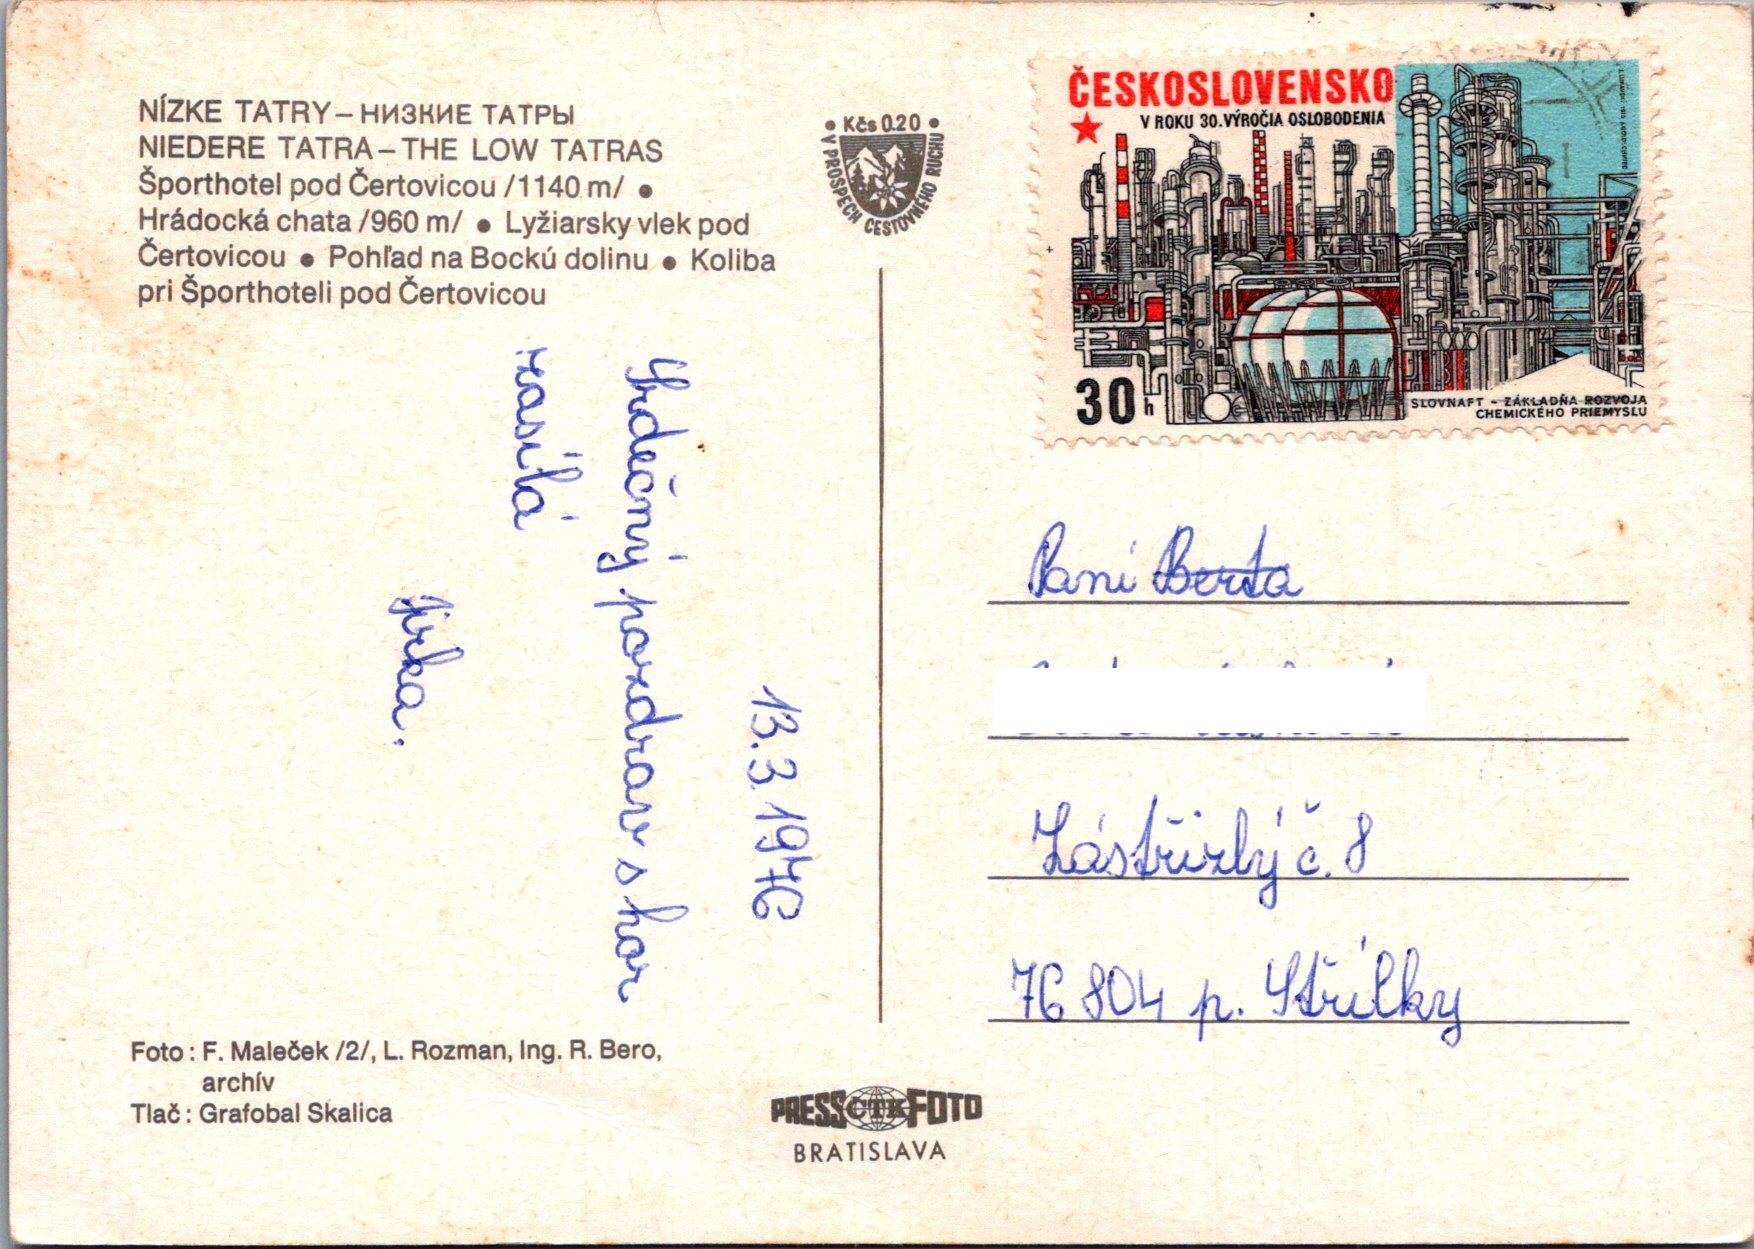 NÍZKE TATRY – НИЗКИЕ ТАТРЫ
NIEDERE TATRA – THE LOW TATRAS
Športhotel pod Čertovicou /1140 m/ ●
Hrádocká chata /960 m/ ● Lyžiarsky vlek pod
Čertovicou ● Pohľad na Bockú dolinu ● Koliba
pri Športhoteli pod Čertovicou
● Kčs 0.20 ●
V PROSPECH CESTOVNÉHO RUCHU
ČESKOSLOVENSKO
V ROKU 30. VÝROČIA OSLOBODENIA
30 h
SLOVNAFT - ZÁKLADŇA ROZVOJA
CHEMICKÉHO PRIEMYSLU
13.3.1976
Srdečný pozdrav s hor
zasílá
Jirka.
Paní Berta
Zástřizly č. 8
76804 p. Střílky
Foto : F. Maleček /2/, L. Rozman, Ing. R. Bero,
archív
Tlač : Grafobal Skalica
PRESS ČTK FOTO
BRATISLAVA